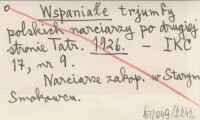 Wspaniałe trjumfy
polskich narciarzy po drugiej
stronie Tatr. 1926. – IKC
17, nr 9.
Narciarze zakop. w Starym
Smokowcu.